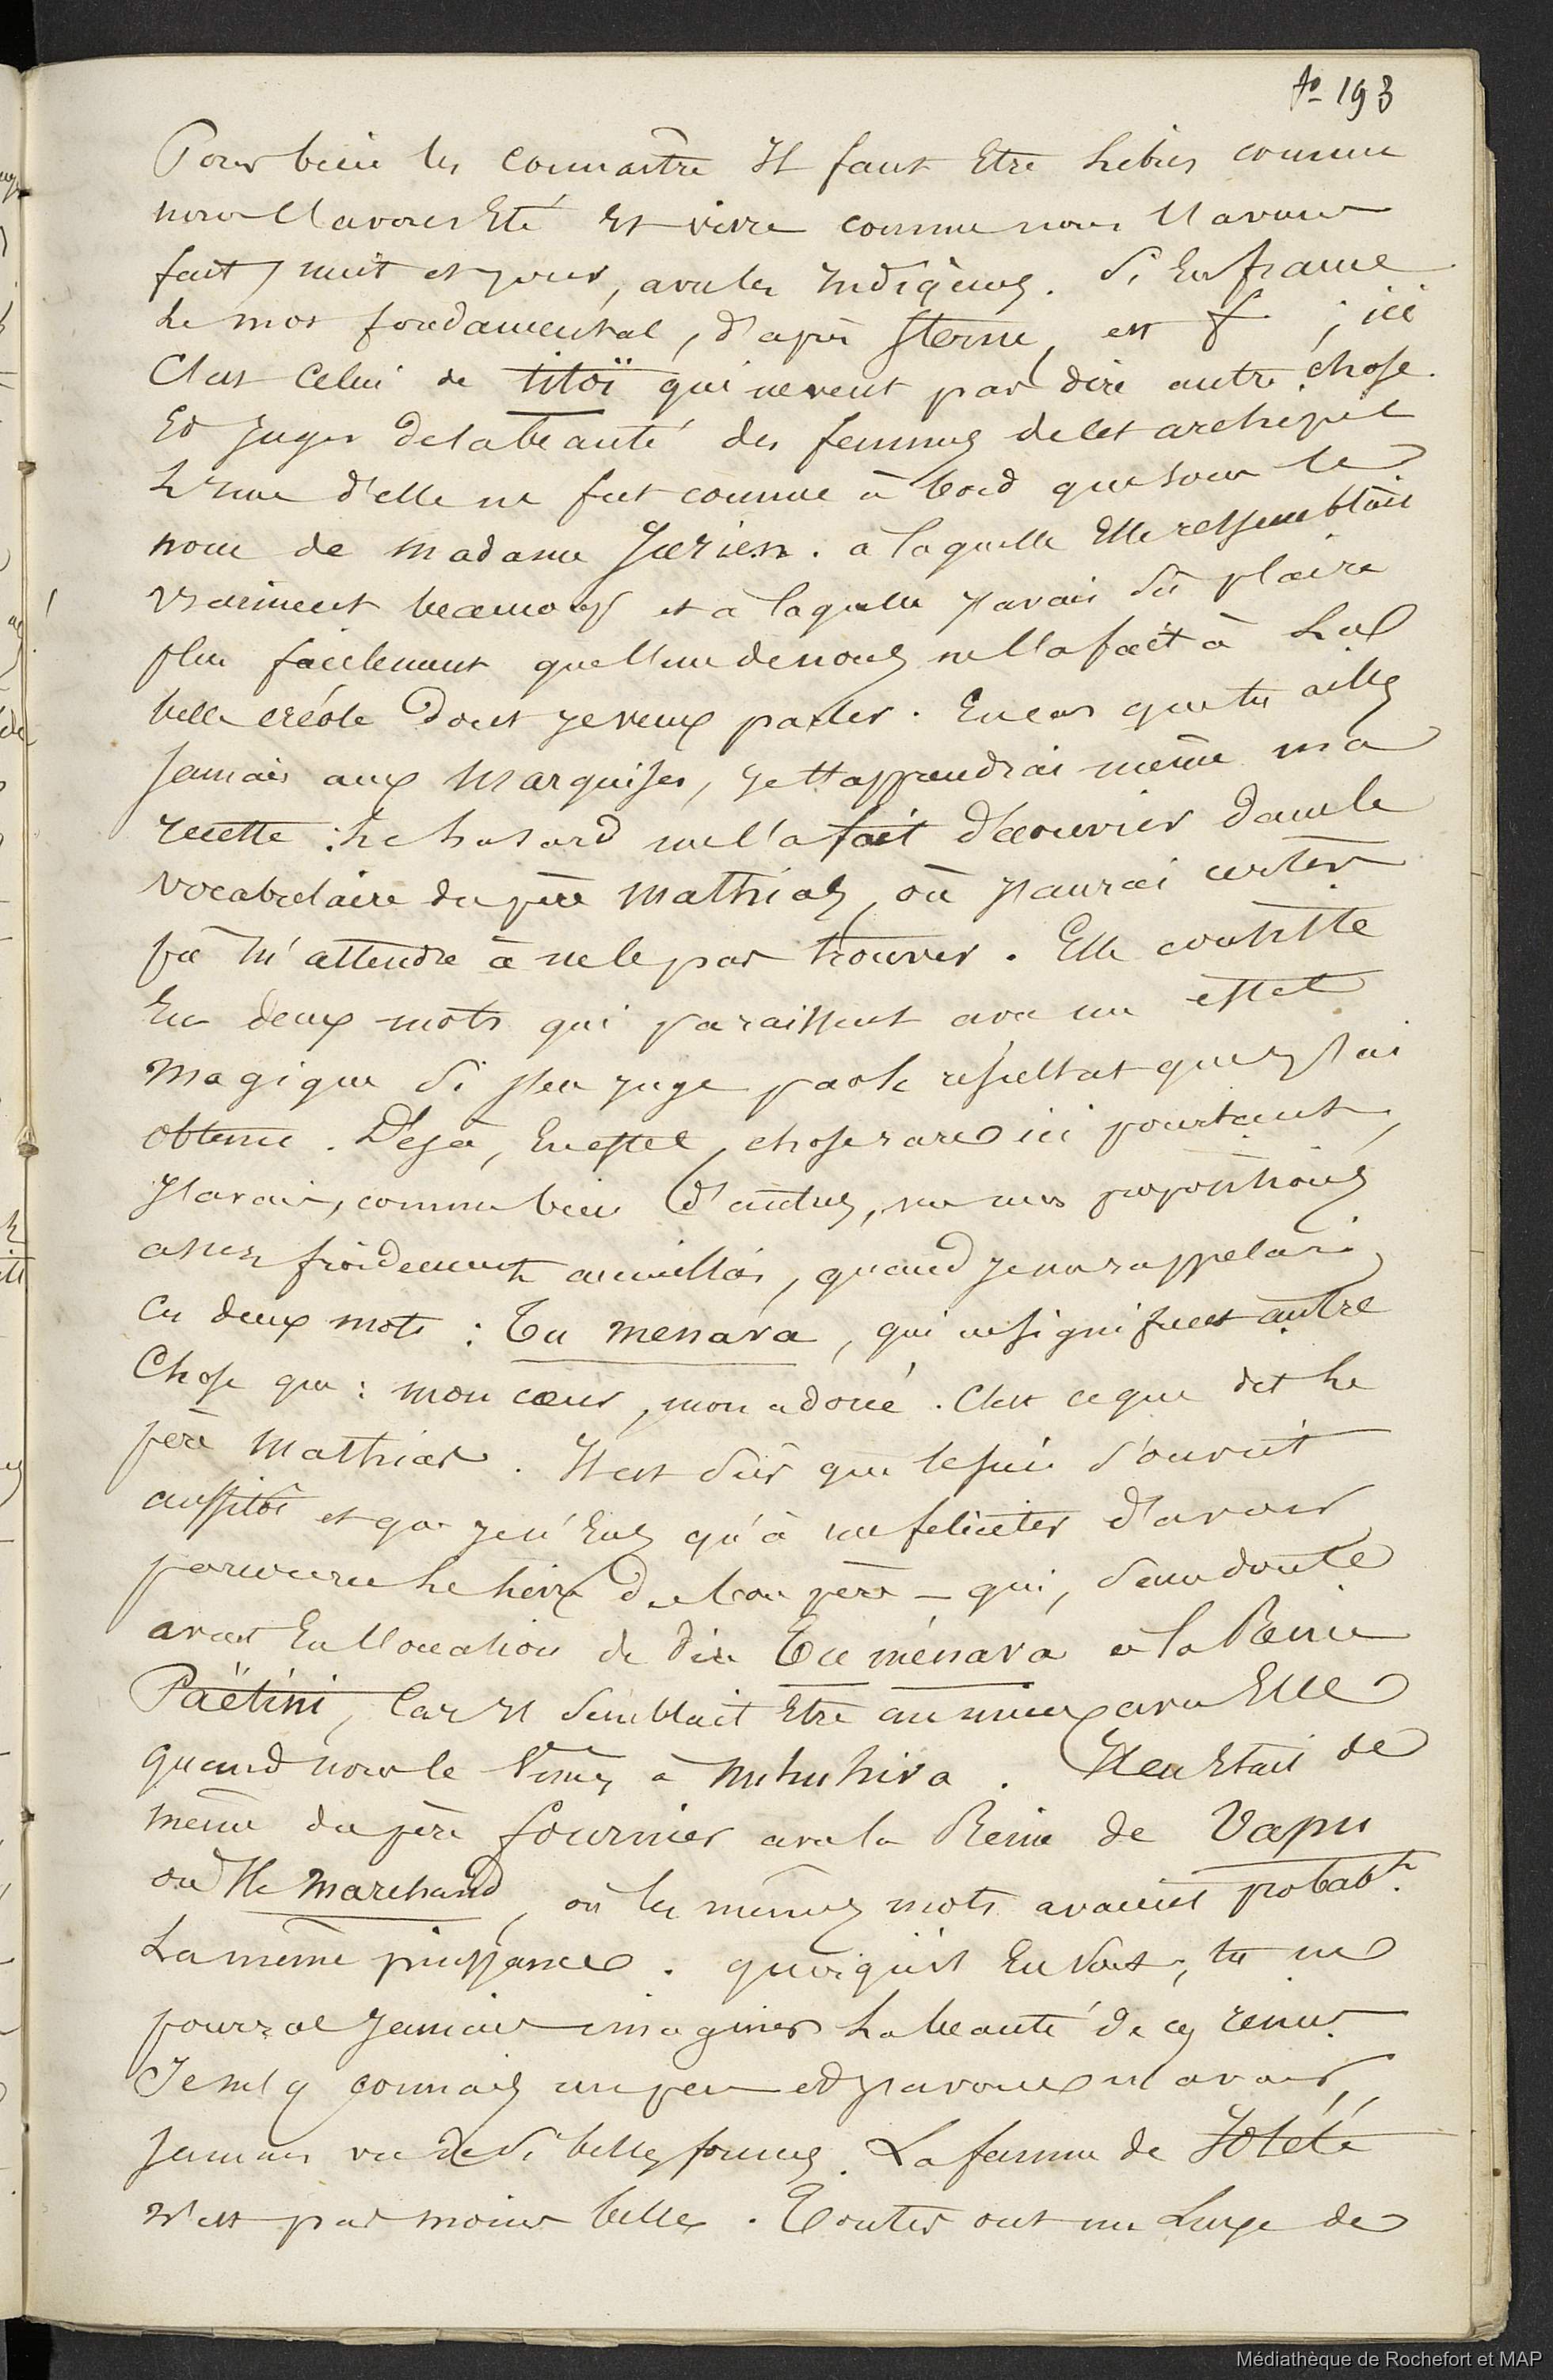 fo 193
Pour bien les connaître Il faut Etre libres comme
nous l'avons Eté Et vivre comme nous l'avons
fait, nuit et jour, avec les indigènes. Si En france
le mot fondamental, d'après Sterne, est f ; ici
C'est celui de titoï qui ne veut pas dire autre chose.
Et juger de la beauté des femmes de cet archipel
L'une d'elle ne fut connue à bord que sous le
nom de madame Jurien. à laquelle Elle ressemblait
vraiment beaucoup et à laquelle j'avais su plaire
plus facilement que l'un de nous ne l'a fait à la
belle créole dont je veux parler. En cas que tu ailles
Jamais aux Marquises, je t'apprendrai même ma
recette : le hasard me l'a fait découvrir dans le
vocabulaire du père Mathias, où j'aurai certes
pu m'attendre à ne le pas trouver. Elle consiste
En deux mots qui paraissent avoir un effet
magique si j'en juge par le résultat que j'ai
obtenu. Déjà, En effet, chose rare ici pourtant,
J'avais, comme bien d'autres, vu mes propositions
assez froidement accueillies, quand je me rappelai
Ces deux mots : Tu menava, qui ne signifient autre
Chose que : mon cœur, mon adoré. C'est ce que dit le
père Mathias. Il est sûr que le sien s'ouvrit
aussitôt et que je n'Eus qu'à me feliciter d'avoir
parcouru le livre du bon père - qui, sans doute
avait Eu l'occasion de dire Tu ménava à la Reine
Paëtini, Car Il semblait Etre au mieux avec Elle
quand nous le vîmes à Nuhuhiva. Il en Etait de
même du père fournier avec la Reine de Vapu
ou Ile Marchand, où les mêmes mots avaient probabt.
La même puissance. quoiqu'il En soit, tu ne
pourras Jamais imaginer La beauté de ces reines.
Je m'y connais un peu et j'avoue n'avoir
Jamais vu de si belles formes. La femme de Iotété
n'est pas moins belle. Toutes ont un Luxe de
Médiathèque de Rochefort et MAP